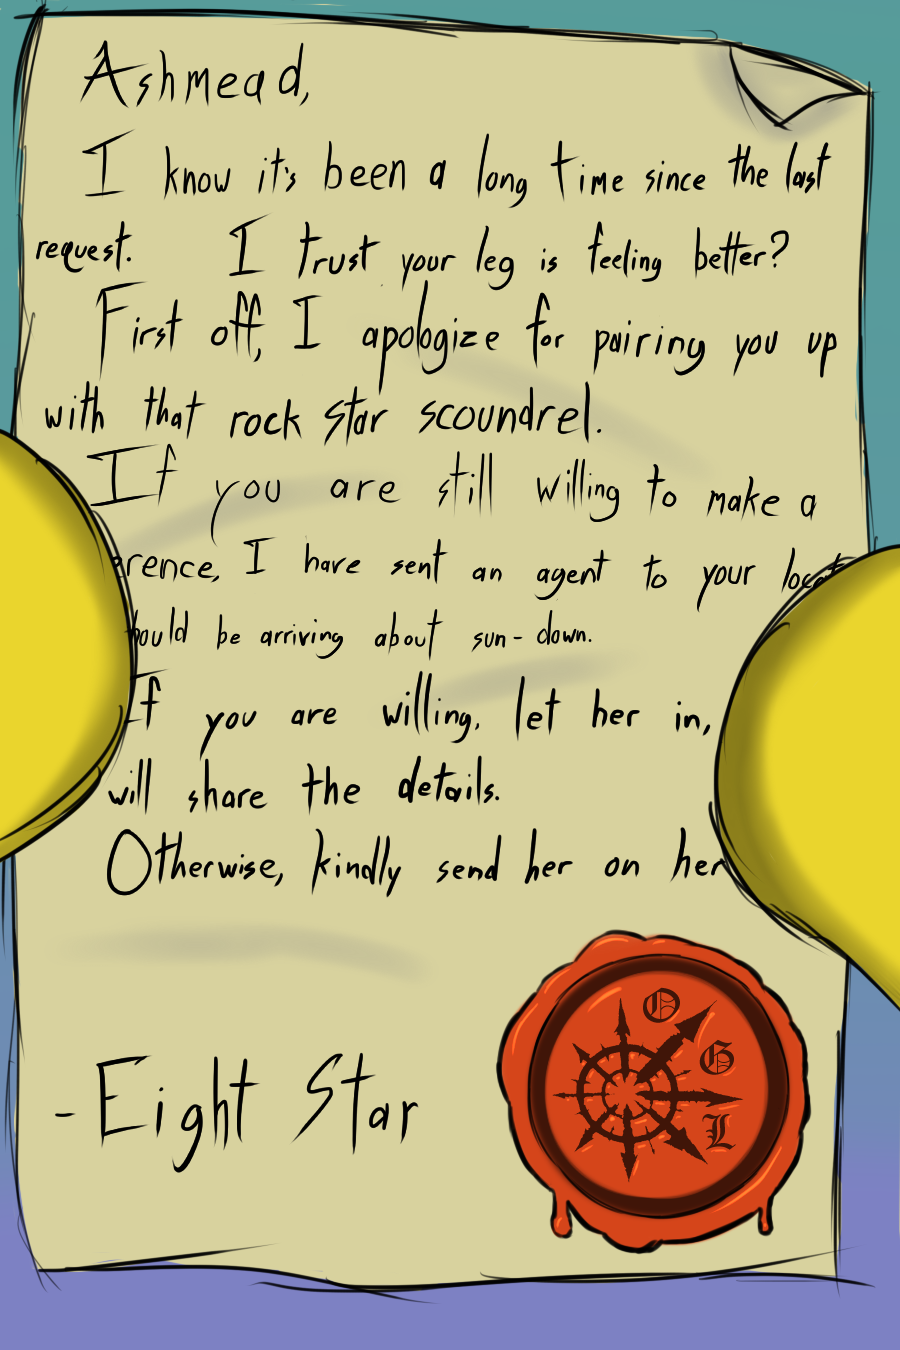 Ashmead,
I know it's been a long time since the last
request. I trust your leg is feeling better?
First off, I apologize for pairing you up
with that rock star scoundrel.
If you are still willing to make a
rence, I have sent an agent to your
ould be arriving about sun-down.
If you are willing, let her in,
will share the details.
Otherwise, kindly send her on her
- Eight Star
O
G
L